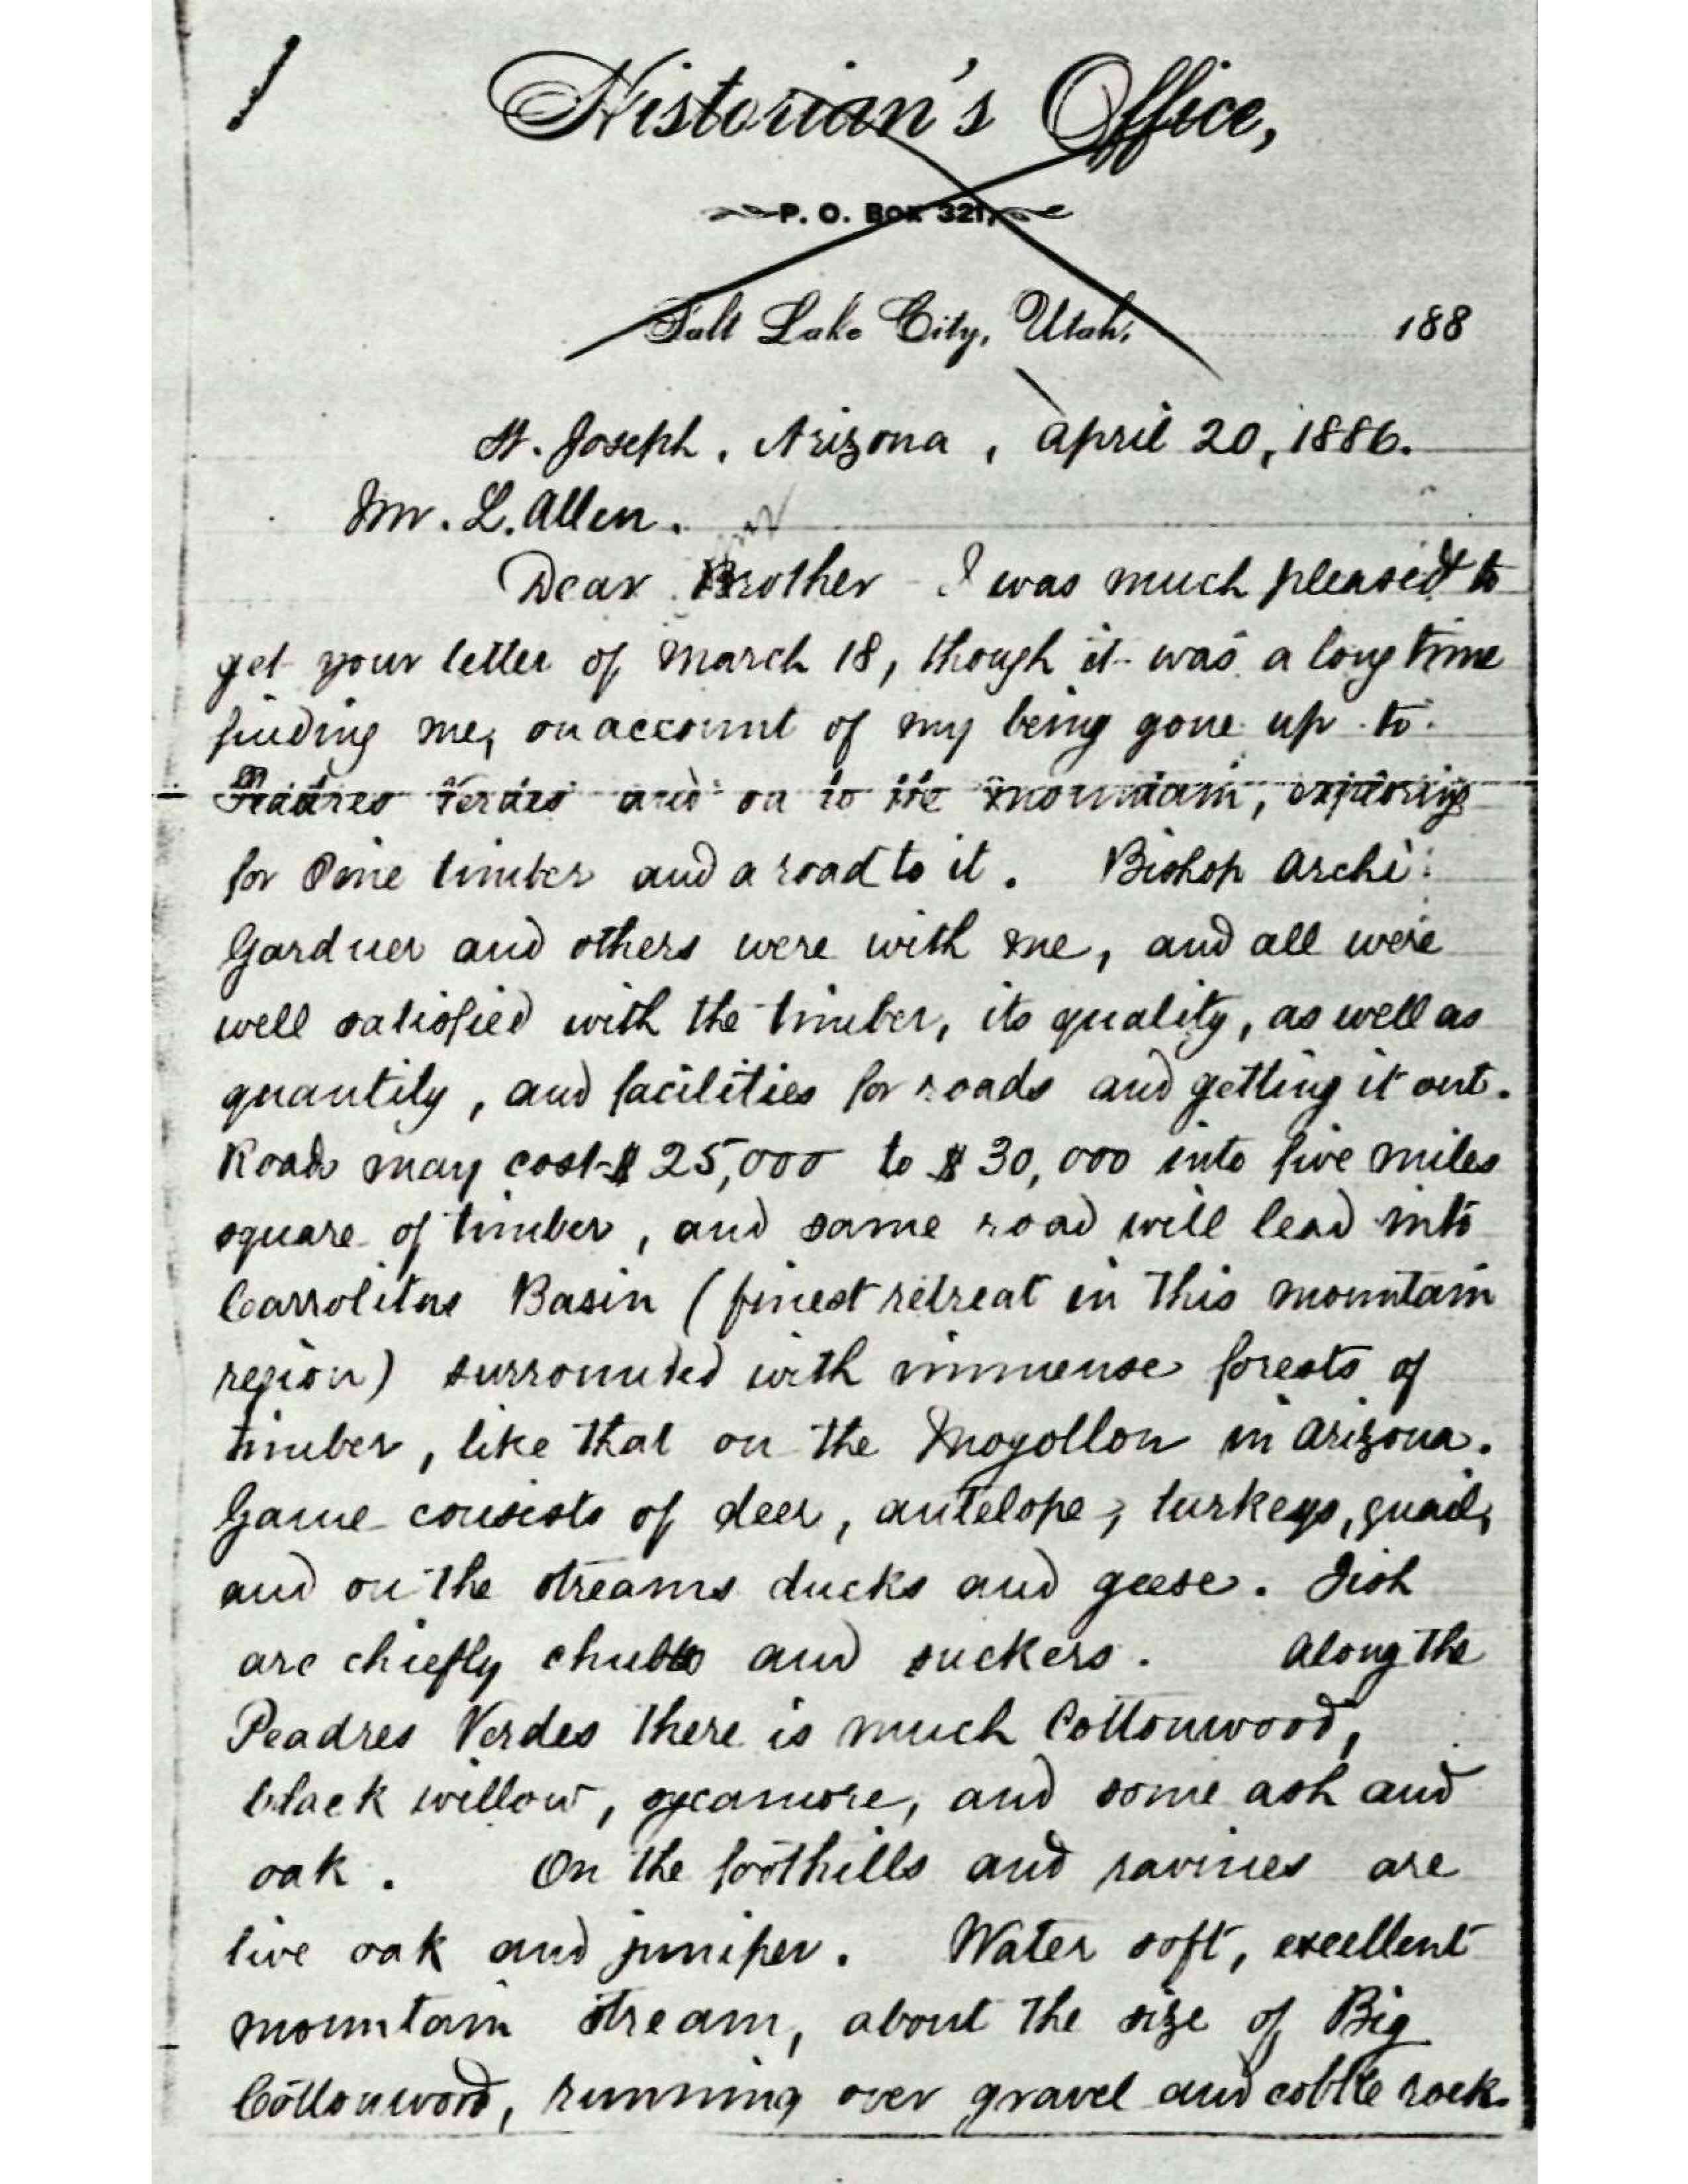 Historian's Office,
P. O. BOX 321,
Salt Lake City, Utah, 188
St. Joseph, Arizona, April 20, 1886.
Mr. L. Allen.
Dear Brother - I was much pleased to
get your letter of March 18, though it was a long time
finding me, on account of my being gone up to
Peadres Verdes and on to the mountain, exploring
for Pine timber and a road to it. Bishop Archi
Gardner and others were with me, and all were
well satisfied with the timber, its quality, as well as
quantity, and facilities for roads and getting it out.
Road may cost $25,000 to $30,000 into five miles
square of timber, and same road will lead into
Carrolitas Basin (finest retreat in this mountain
region) surrounded with immense forests of
timber, like that on the Mogollon in Arizona.
Game consists of deer, antelope, turkeys, quail,
and on the streams ducks and geese. Fish
are chiefly chubbs and suckers. Along the
Peadres Verdes there is much Cottonwood,
black willow, sycamore, and some ash and
oak. On the foothills and ravines are
live oak and juniper. Water soft, excellent
mountain stream, about the size of Big
Cottonwood, running over gravel and cobble rock.